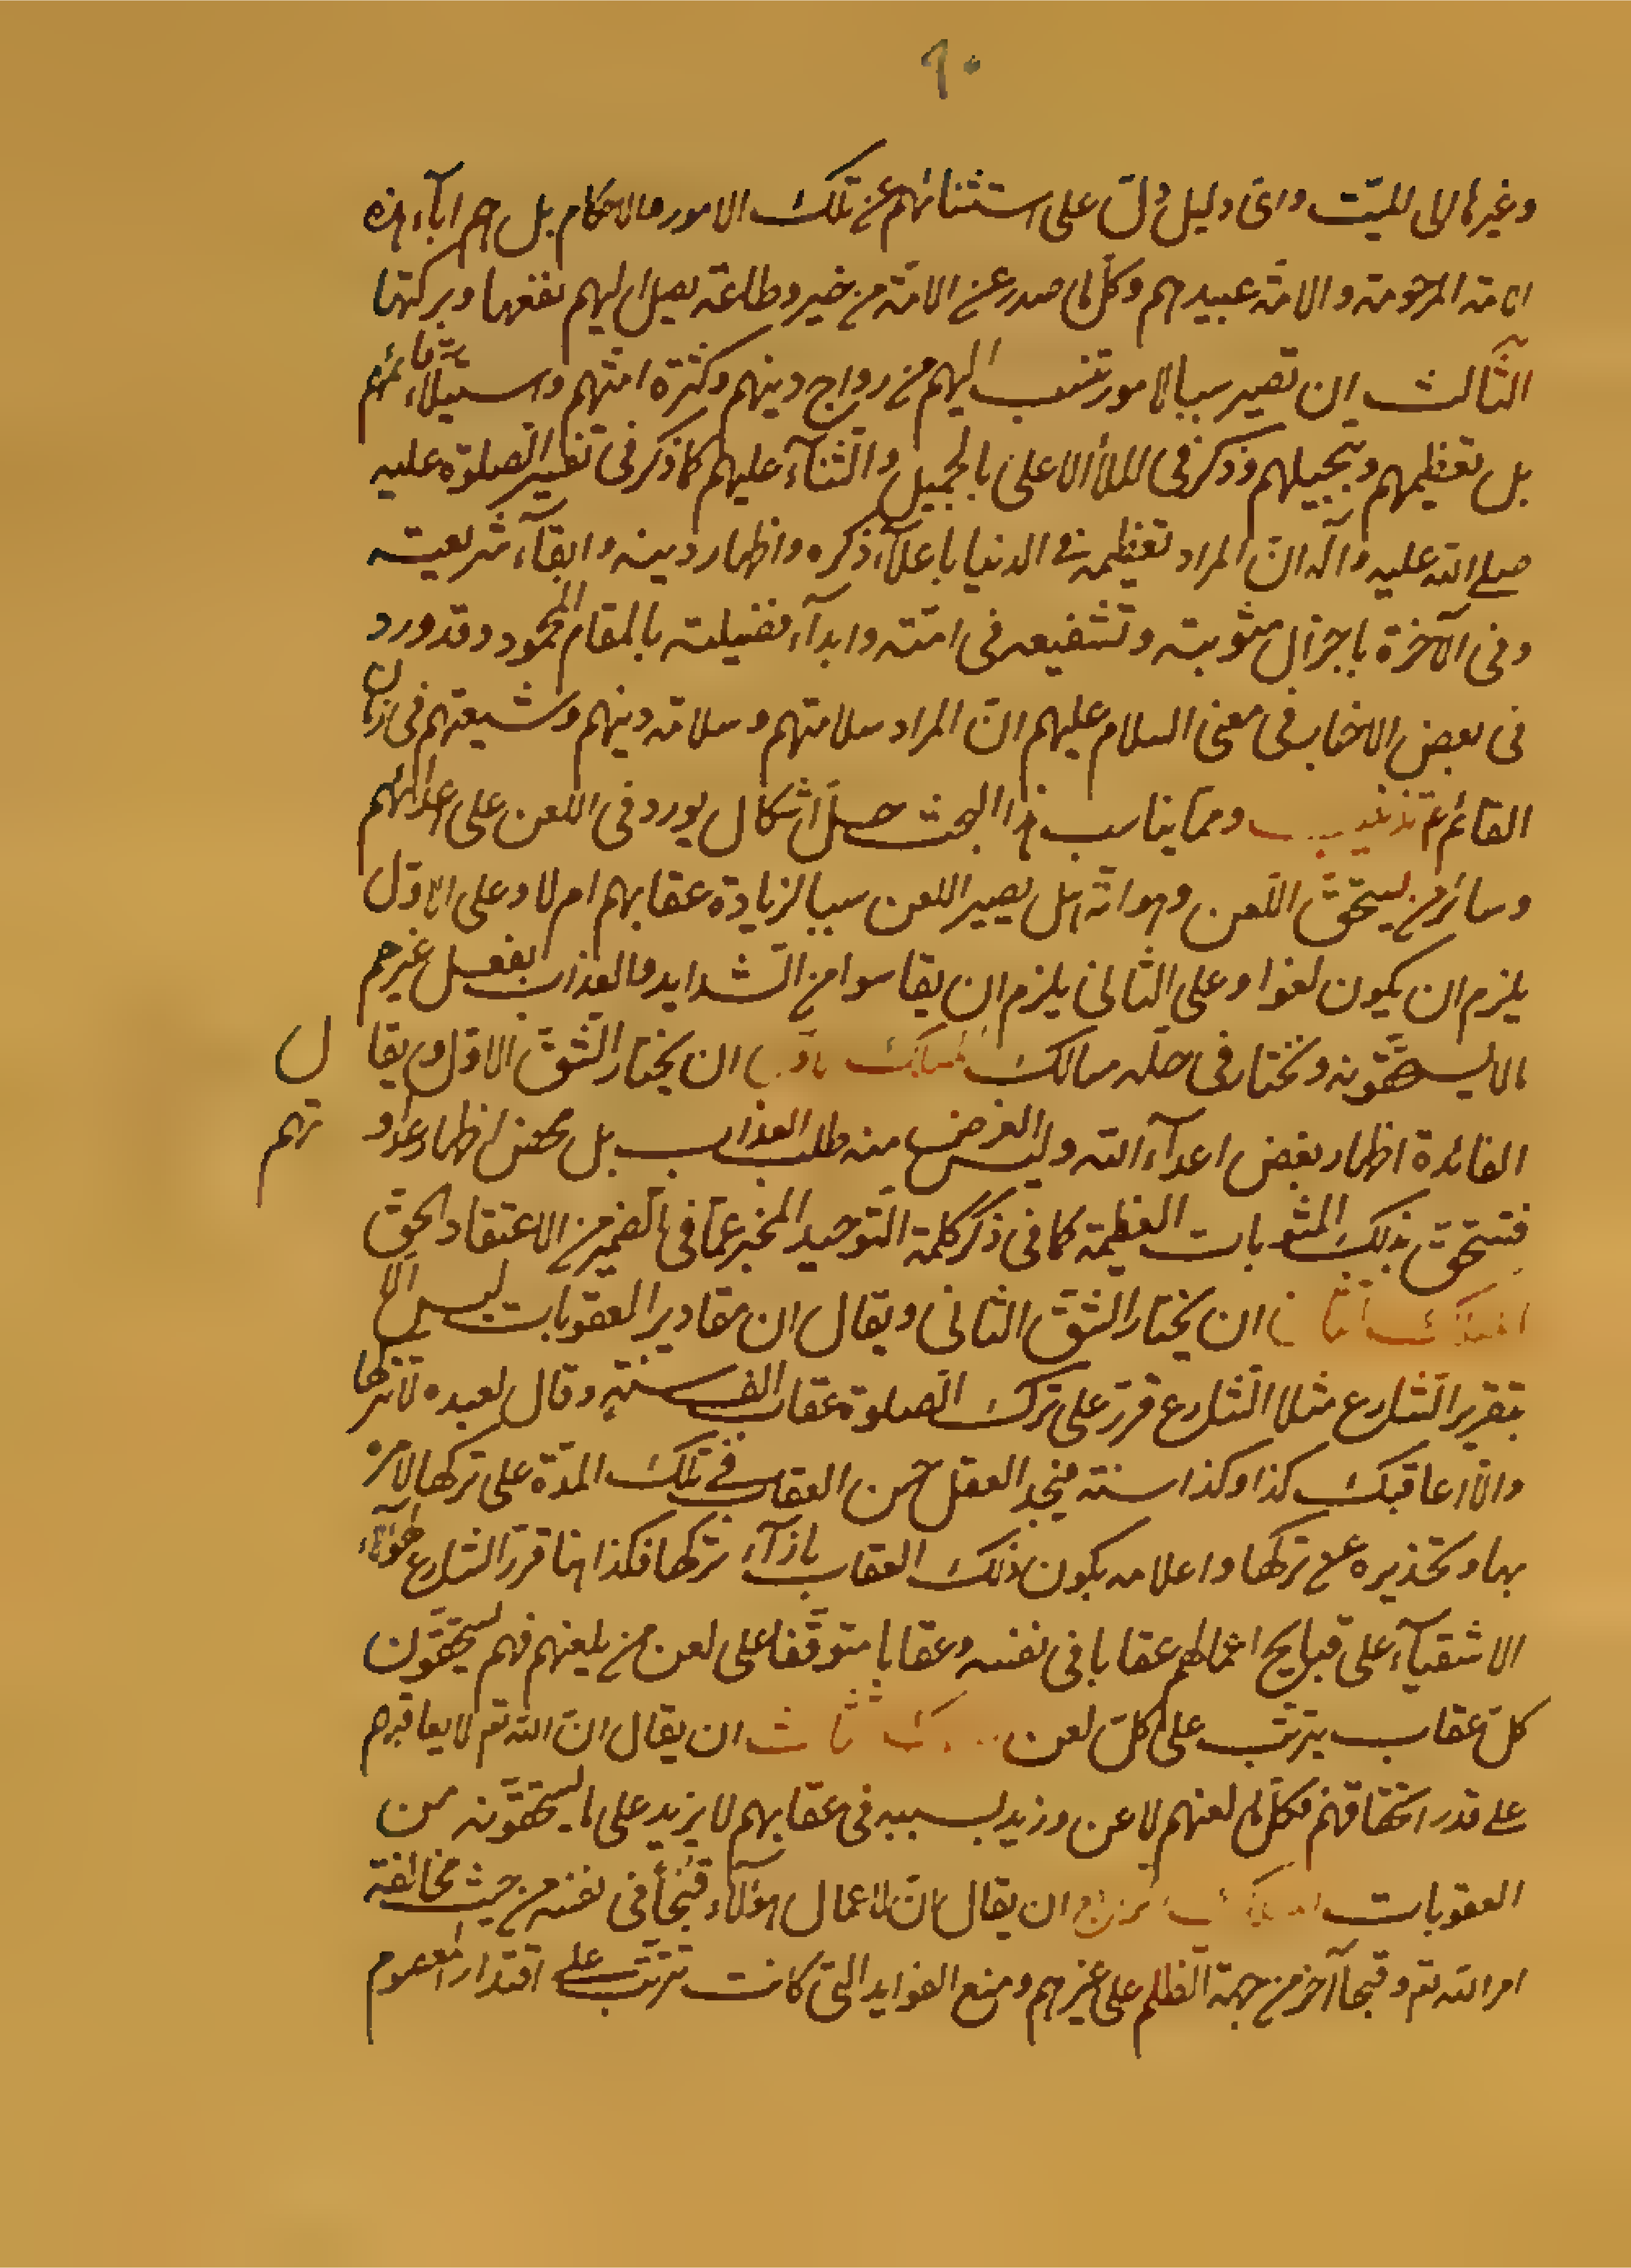 ٩٠
وغيرها الى الميّت واىّ دليل دلّ على استثنائهم عن تلك الامور والاحكام بل هم آباء هذه
الامة المرحومة والامّة عبيدهم وكلّ ما صدر عن الامّة من خير وطاعة يصل اليهم نفعها وبركتها
الثّالث ان تصير سببا لامور تنسب اليهم من رواج دينهم وكثرة امّتهم واستيلاء قائمهم
بل تعظيمهم وتبجيلهم وذكر فى الملأ الاعلى بالجميل والثّناء عليهم كما ذكر فى تفسير الصلوة عليه
صلى الله عليه وآله انّ المراد تعظيمه فى الدنيا باعلاء ذكره واظهار دينه وابقاء شريعته
وفى الآخرة باجزال مثوبته وتشفيعه فى امّته وابداء فضيلته بالمقام المحمود وقد ورد
فى بعض الاخبار فى معنى السلام عليهم انّ المراد سلامتهم وسلامة دينهم وشيعتهم فى زمان
القائم تذنيب وممّا يناسب هذا البحث حلّ اشكال يورد فى اللعن على اعدائهم
وسائر من يستحقّ اللّعن وهو انّه هل يصير اللعن سببا لزيادة عقابهم ام لا وعلى الاوّل
يلزم ان يكون لغوا وعلى الثانى يلزم ان يقاسوا من الشدايد والعذاب بفعل غيرهم
ما لا يستحقّونه ونختار فى حلّه مسالك المسلك الاوّل ان يختار الشّقّ الاوّل ويقال
الفائدة اظهار بغض اعداء الله وليس الغرض منه طلب العذاب بل محض اظهار عداوتهم
فتستحقّ بذلك المثوبات العظيمة كما فى ذكر كلمة التّوحيد المخبر عمّا فى الضمير من الاعتقاد الحقّ
المسلك الثانى ان يختار الشّقّ الثانى ويقال ان مقادير العقوبات ليس الّا
بتقرير الشّارع مثلا الشّارع قرّر على ترك الصلوة عقاب الف سنة وقال لعبده لا تتركها
والّا اعاقبك كذا وكذا سنة فيجد العقل حسن العقاب فى تلك المدّة على تركها لامره
بها وتحذيره عن تركها واعلامه بكون ذلك العقاب بازاء تركها فكذا هنا قرّر الشارع لهؤلاء
الاشقياء على قبايح اعمالهم عقابا فى نفسه وعقابا متوقّفا على لعن من يلعنهم فهم يستحقّون
كلّ عقاب يترتّب على كلّ لعن المسلك الثالث ان يقال انّ الله تع لا يعاقبهم
على قدر استحقاقهم فكلّ ما لعنهم لاعن وزيد بسببه فى عقابهم لا يزيد على ما يستحقّونه من
العقوبات المسلك الرابع ان يقال انّ لاعمال هؤلاء قبحاً فى نفسه من حيث مخالفة
امر الله تع وقبحاً آخر من جهة الظلم على غيرهم ومنع الفوايد التى كانت تترتّب على اقتدار المعصوم